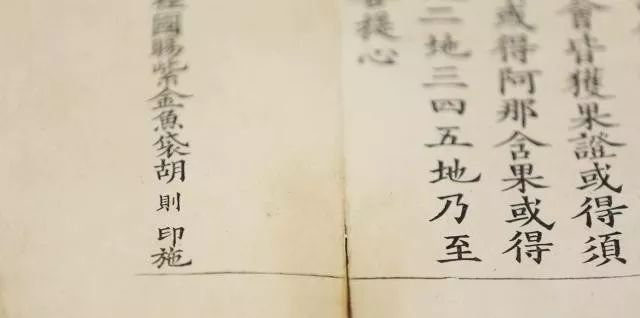 會皆獲果證或得須
或得阿那含果或得
二地三四五地乃至
菩提心
國賜紫金魚袋胡則印施